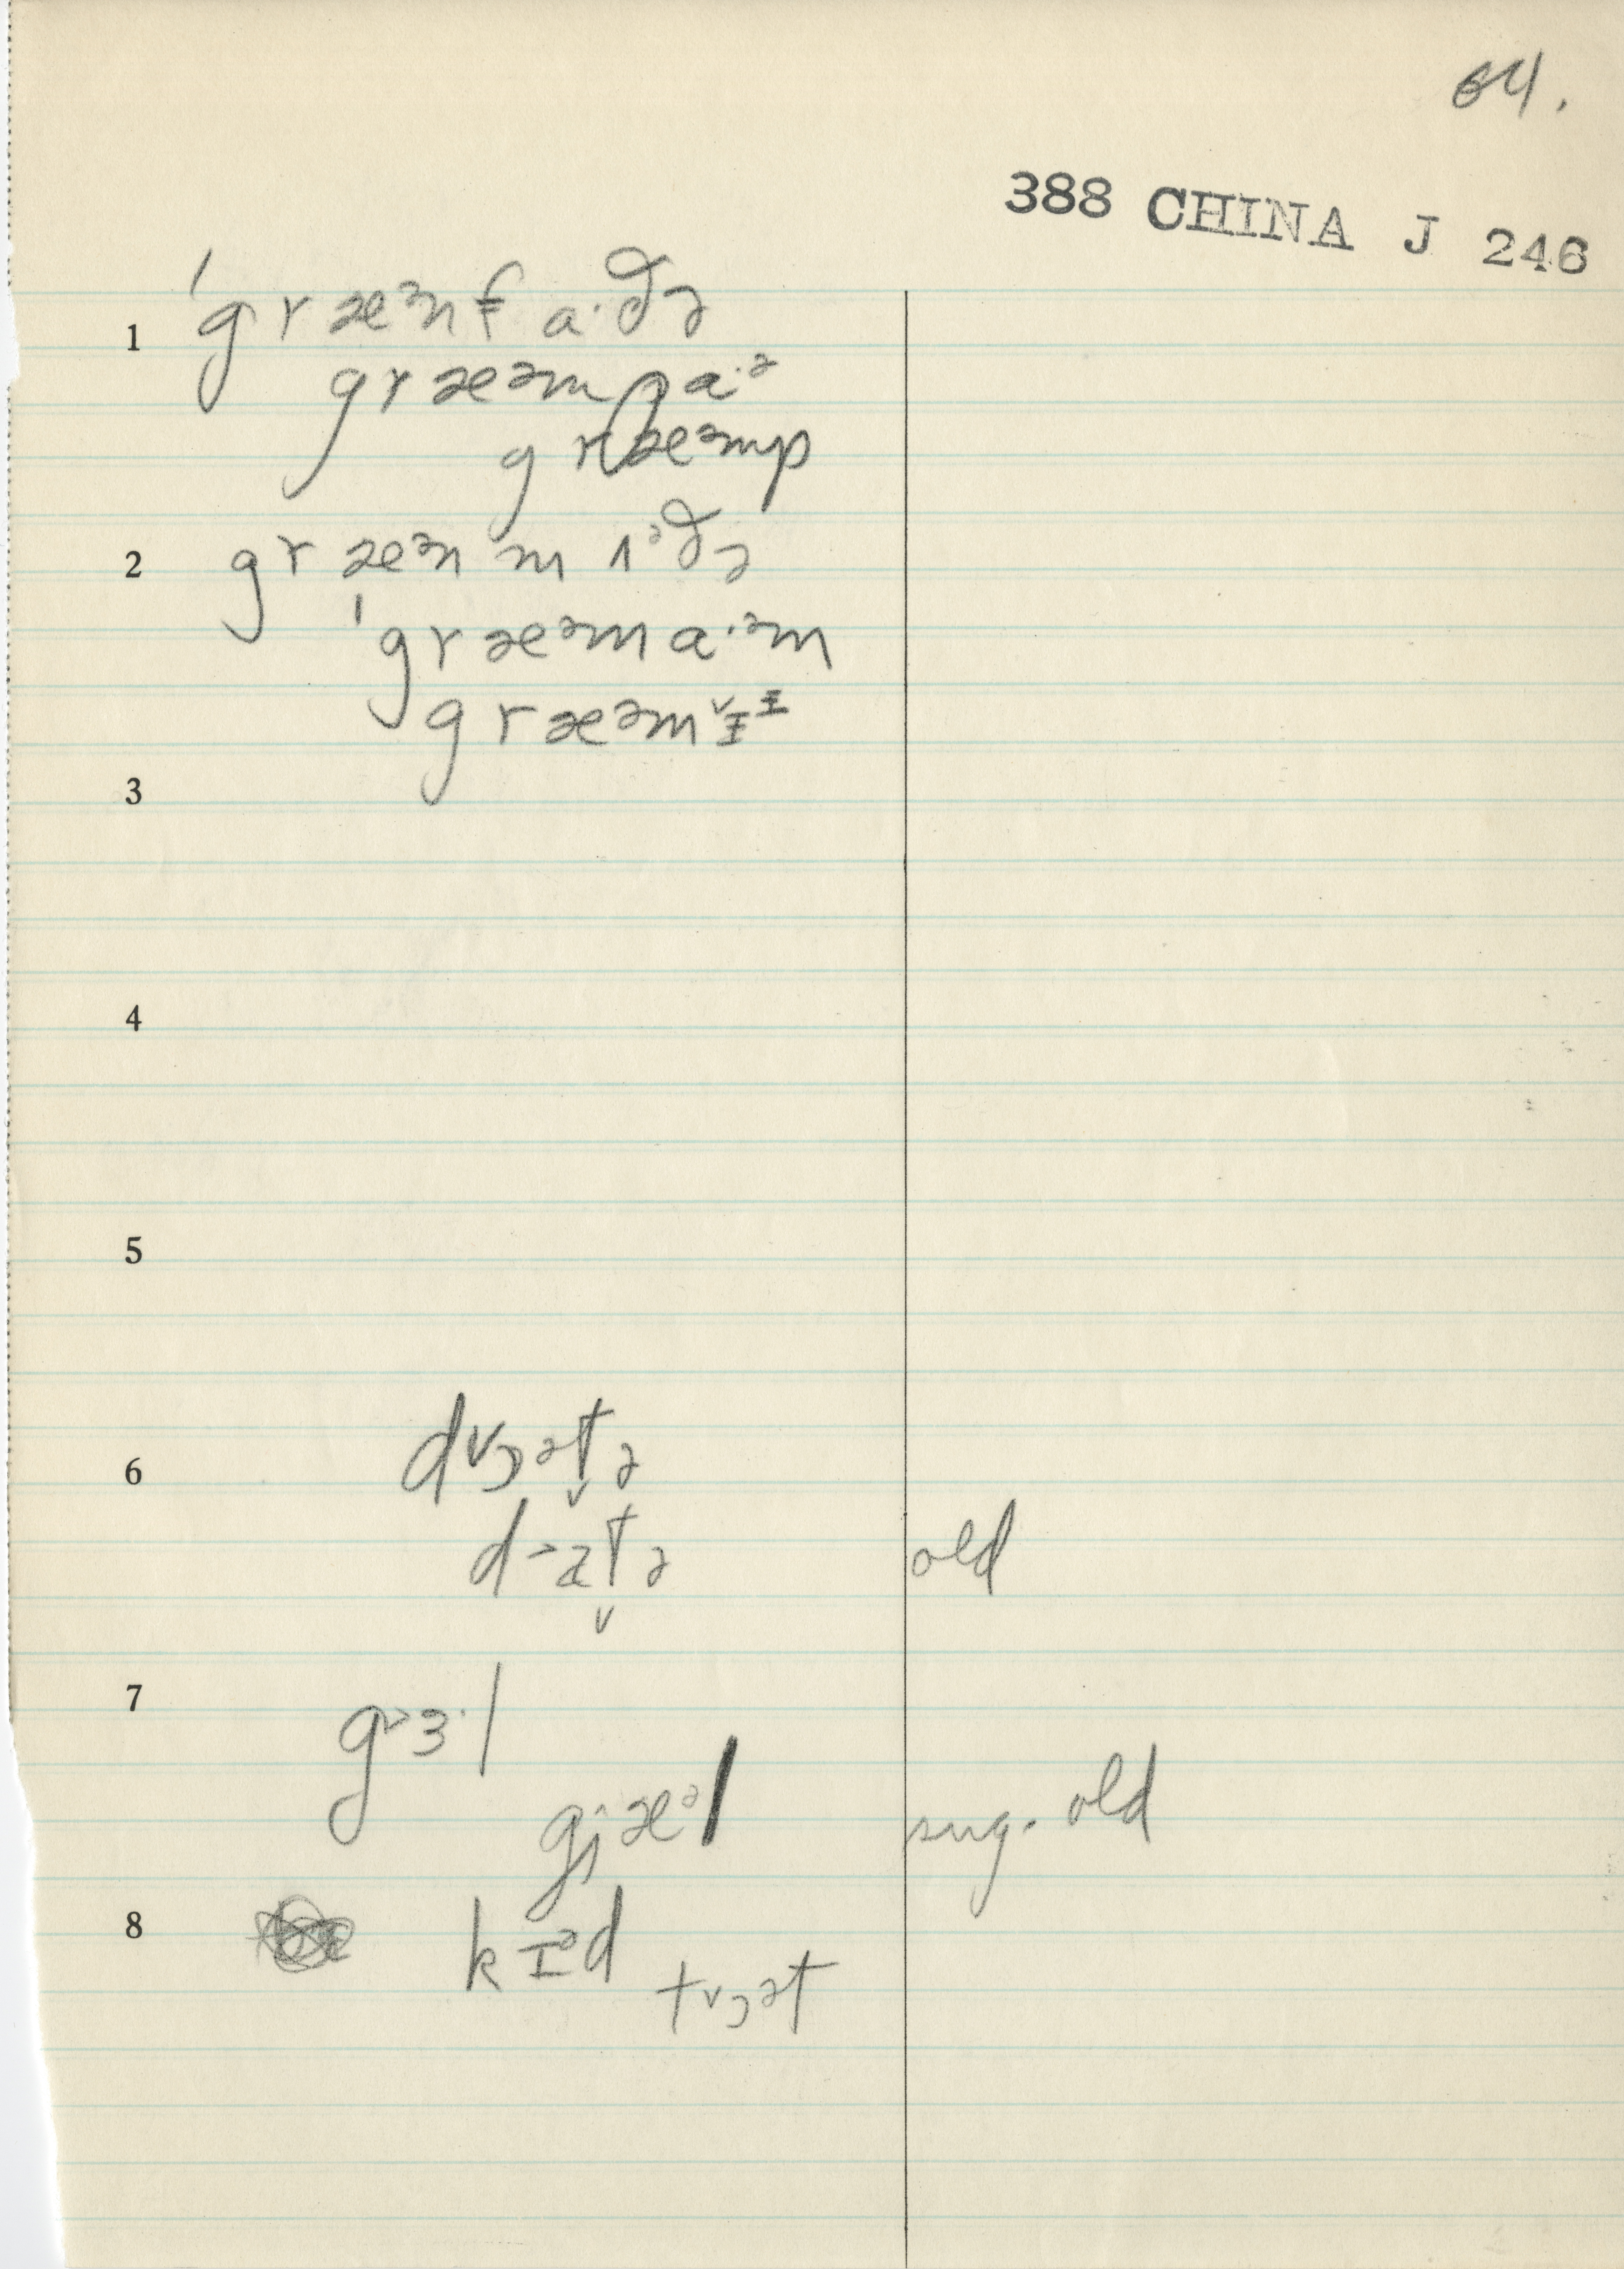 64.
388 CHINA J 246
1 ˈgræᵊnfɑ·ðə
græᵊmpɑ·ᵊ
græᵊmp
2 græᵊnmʌᵊðə
ˈgræᵊmɑ·ᵊm
græᵊm˅ɪᶦ
3
4
5
6 d˅ɔᵊt̬ə
old
7 g˃ɜ·l
gjæᵊl sug. old
8 kɪᵊd
t˅ɔᵊt